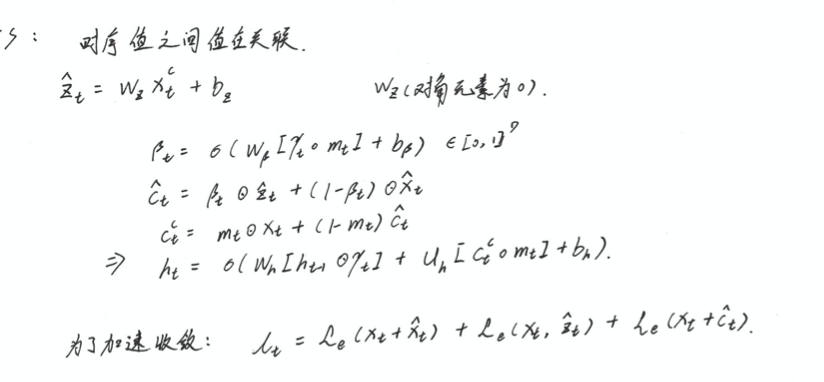 S: 时序值之间值在关联.
ẑ_t = W_z x_t^c + b_z    W_z(对角元素为0).
β_t = σ(W_β[γ_t∘m_t] + b_β) ∈[0,1]^D
ĉ_t = β_t ⊙ ẑ_t + (1-β_t) ⊙ x̂_t
c_t^c = m_t ⊙ x_t + (1-m_t) ĉ_t
⇒ h_t = σ(W_h[h_{t-1} ⊙ γ_t] + U_h[c_t^c∘m_t] + b_h).
为了加速收敛: l_t = L_e(x_t + x̂_t) + L_e(x_t, ẑ_t) + L_e(x_t + ĉ_t).